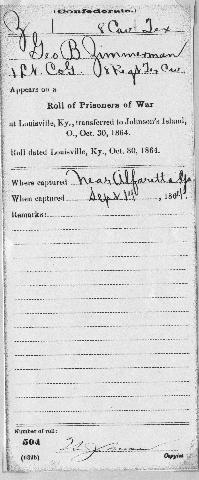 (Confederate.)
Z | 8 Cav | Tex
Geo B Zimmerman
1 Lt, Co I, 8 Reg't Tex Cav.
Appears on a
Roll of Prisoners of War
at Louisville, Ky., transferred to Johnson's Island,
O., Oct. 30, 1864.
Roll dated Louisville, Ky., Oct. 30, 1864.
Where captured Near Alfaretta Ga
When captured Sept , 1864.
Remarks:
Number of roll:
504
(639b) Copyist